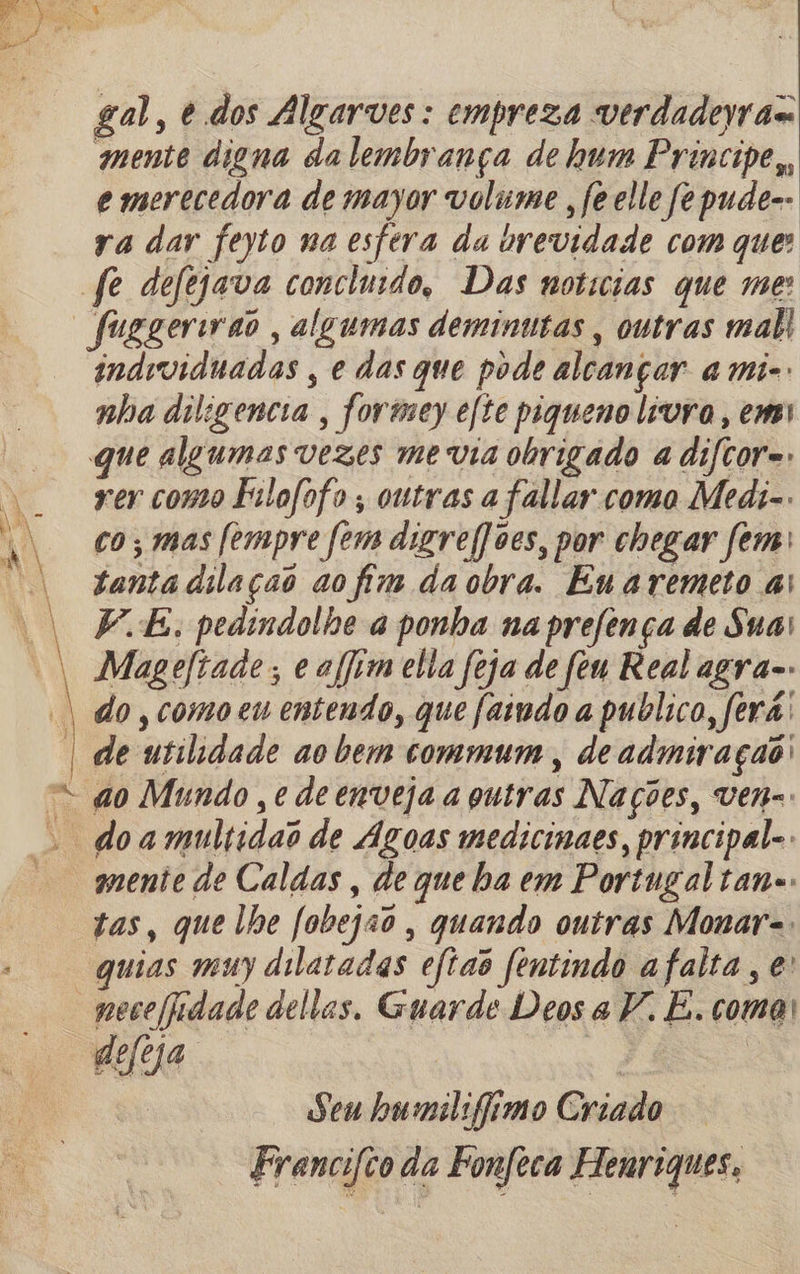 gal, e dos Algarves: empreza verdadeyra-
mente digna da lembrança de hum Principe,
e merecedora de mayor volume, ſe elle ſe pude-
ra dar feyto na esfera da brevidade com que
ſe deſejava concluido, Das noticias que me
ſuggeriraõ, algumas deminutas, outras mal
individuadas, e das que pòde alcançar a mi-
nha diligencia, formey eſte piqueno livro, em
que algumas vezes me via obrigado a diſcor-
rer como Filoſofo; outras a fallar como Medi-
co; mas ſempre ſem digreſſões, por chegar ſem
tanta dilaçaõ ao fim da obra. Eu a remeto a
V. E. pedindolhe a ponha na preſença de Sua
Mageſtade; e aſſim ella ſeja de ſeu Real agra-
do, como eu entendo, que ſaindo a publico, ſerá
de utilidade ao bem commum, de admiraçaõ
ao Mundo, e de enveja a outras Nações, ven-
do a multidaõ de Agoas medicinaes, principal-
mente de Caldas, de que ha em Portugal tan-
tas, que lhe ſobejaõ, quando outras Monar-
quias muy dilatadas eſtaõ ſentindo a falta, e
neceſſidade dellas. Guarde Deos a V. E. como
deſeja
Seu humiliſſimo Criado
Franciſco da Fonſeca Henriques.